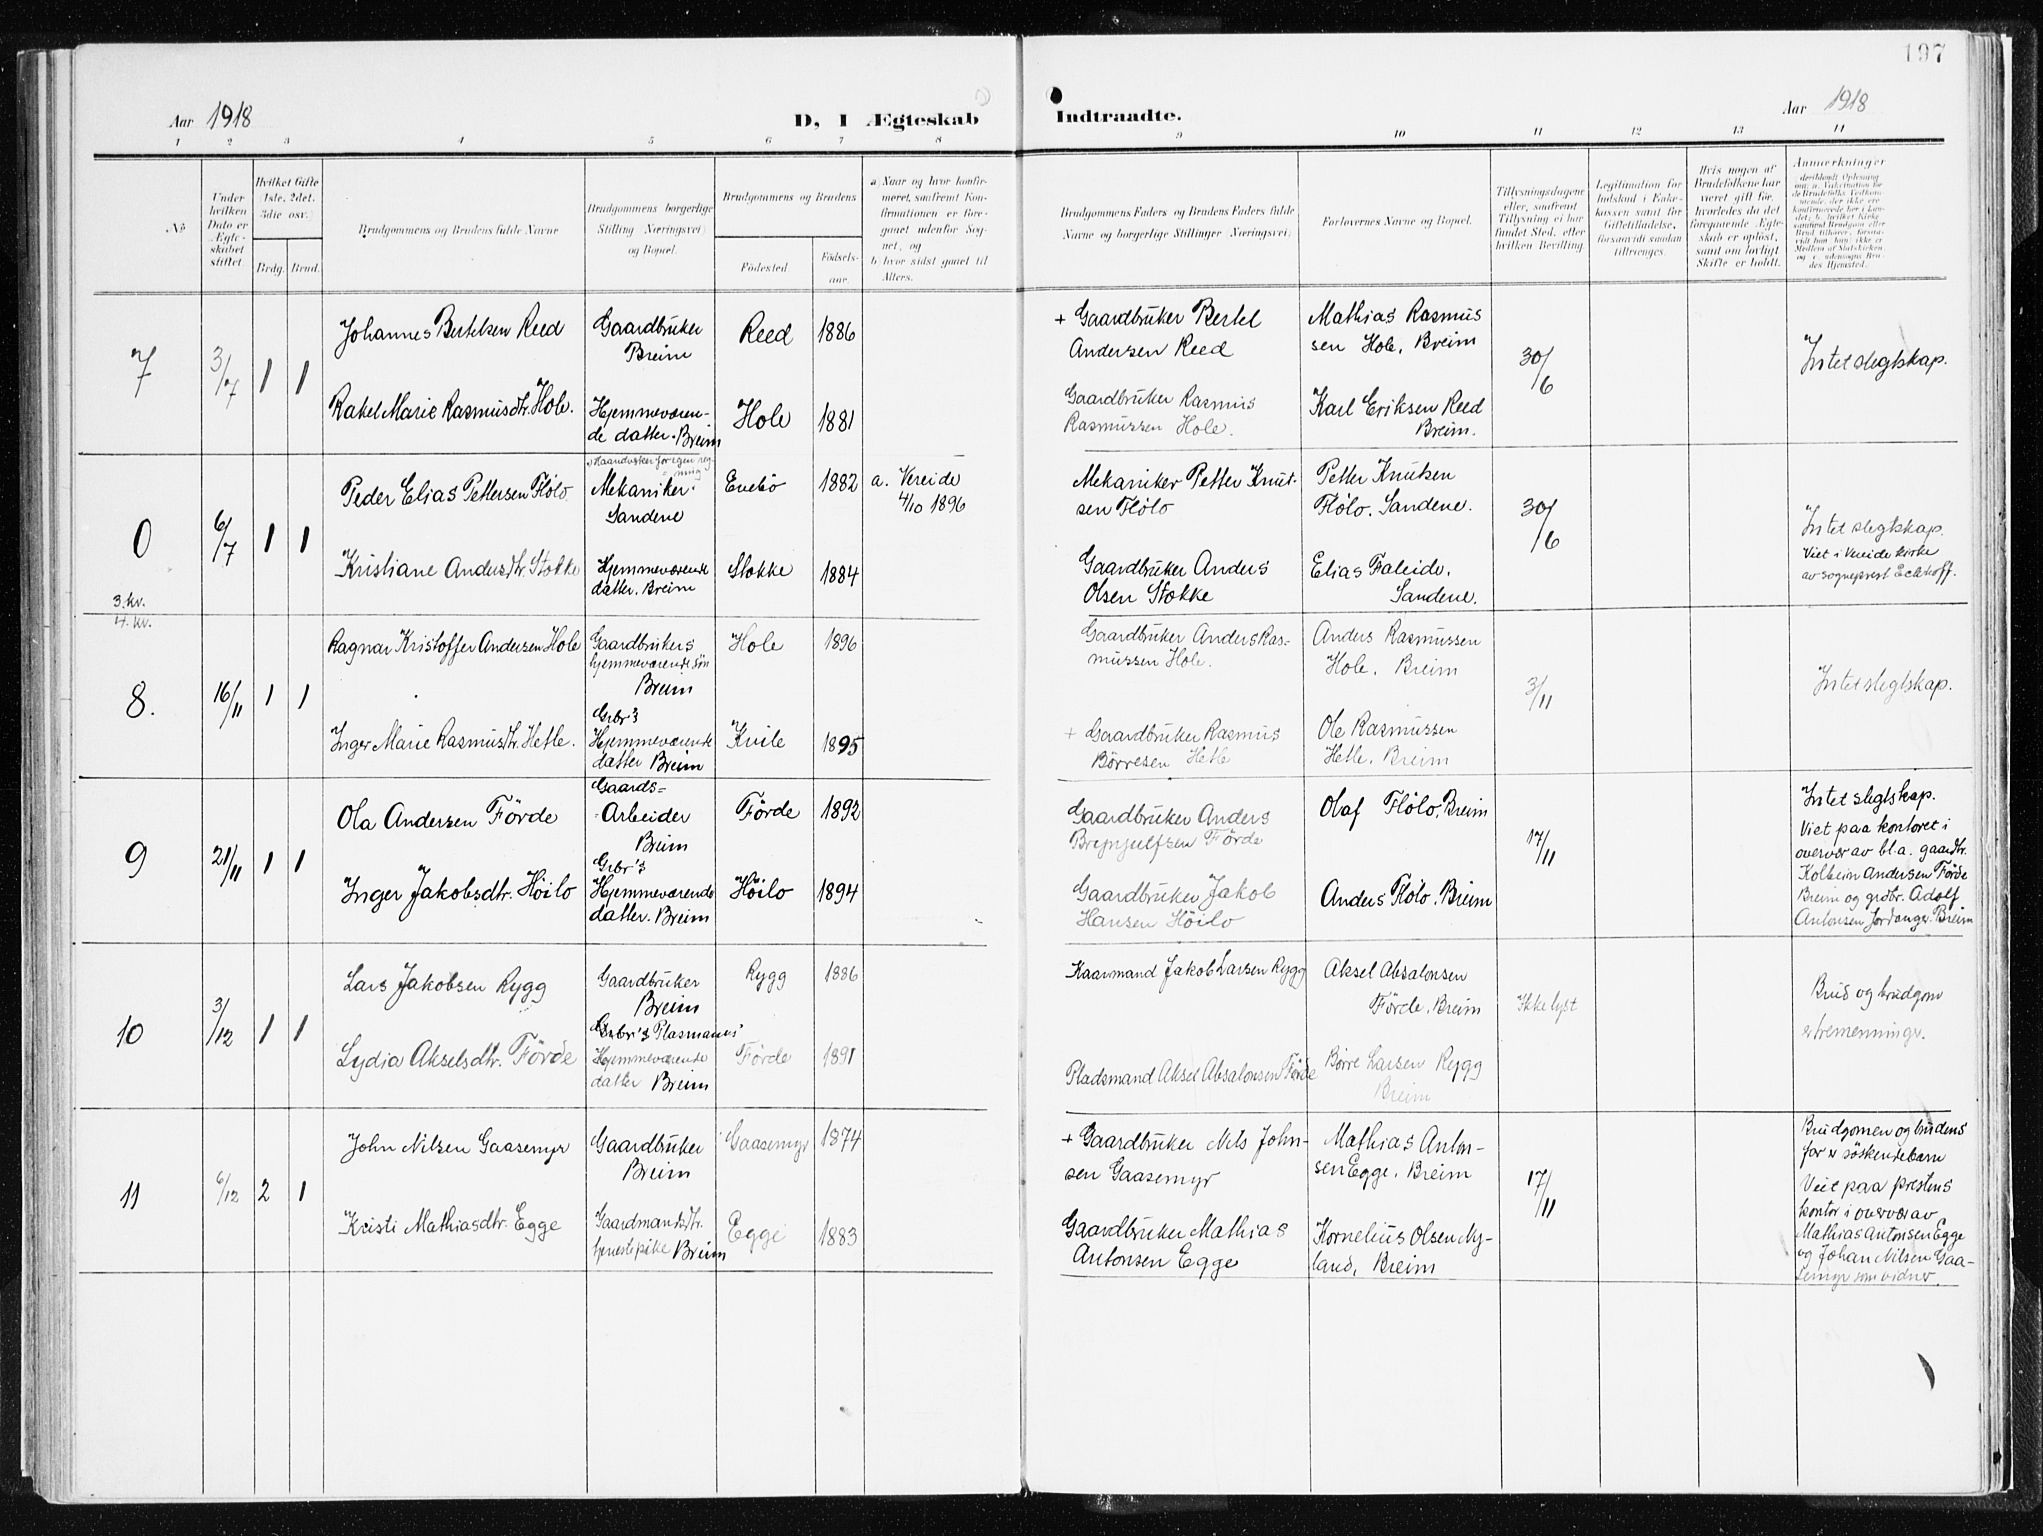 197
Aar 1918
D, I Ægteskab
Indtraadte.
Aar 1918
1 2 3 4 5 6 7 8 9 10 11 12 13 14
No
Under hvilken Dato er Ægteskabet stiftet.
Hvilket Gifte (1ste, 2det, 3die osv.)
Brdg. Brud.
Brudgommens og Brudens fulde Navne
Brudgommens borgerlige Stilling (Næringsvei) og Bopæl.
Brudgommens og Brudens
Fødested
Fødselsaar.
a) Naar og hvor konfirmeret, saafremt Konfirmationen er foregaaet udenfor Sognet, og
b) hvor sidst gaaet til Alters.
Brudgommens Faders og Brudens Faders fulde Navne og borgerlige Stillinger (Næringsvei)
Forlovernes Navne og Bopæl.
Tillysningsdagene eller, saafremt Tillysning ei har fundet Sted, efter hvilken Bevilling.
Legitimation for Indskud i Enkekassen samt for Giftetilladelse, forsaavidt saadan tiltrænges.
Hvis nogen af Brudefolkene har været gift før, hvorledes da det foregaaende Ægteskab er opløst, samt om lovligt Skifte er holdt.
Anmerkninger
7
3/7
1 1
Johannes Bertelsen Reed
Gaardbruker
Breim
Reed
1886
+ Gaardbruker Bertel
Andersen Reed
Mathias Rasmus
sen Hole, Breim
30/6
Intet slegtskap.
Rakel Marie Rasmusdtr. Hole.
Hjemmeværen-
de datter. Breim
Hole
1881
Gaardbruker Rasmus
Rasmussen Hole.
Karl Eriksen Reed
Breim.
0
6/7
1 1
Peder Elias Pettersen Flölo
Mekaniker
Sandene
Evebö
1882
a. Vereide
4/10 1896
Mekaniker Petter Knut-
sen Flölo
Petter Knutsen
Flölo. Sandene.
30/6
Intet slegtskap.
Viet i Vereide kirke
av sogneprest Eckhoff.
Kristiane Andersdtr. Stokke
Hjemmeværende
datter. Breim
Stokke
1884
Gaardbruker Anders
Olsen Stokke
Elias Faleide,
Sandene.
3. kv.
4. kv.
8.
16/11
1 1
Ragnar Kristoffer Andersen Hole
Gaardbrukers
hjemmeværende sön
Breim
Hole
1896
Gaardbruker Anders Ras-
mussen Hole.
Anders Rasmussen
Hole, Breim
3/11
Intet slegtskap.
Inger Marie Rasmusdtr. Hetle.
Grbr's
Hjemmeværende
datter Breim
Kvile
1895
+ Gaardbruker Rasmus
Börresen Hetle
Ole Rasmussen
Hetle, Breim
9
21/11
1 1
Ola Andersen Förde
Gaards=
Arbeider
Breim
Förde
1892
Gaardbruker Anders
Brynjulfsen Förde
Olaf Flölo, Breim
17/11
Intet slegtskap.
Viet paa kontoret i
overvær av bl.a. gaardbr.
Kolbein Andersen Förde
Breim og grdbr. Adolf
Antonsen Jordanger. Breim
Inger Jakobsdtr. Höilo
Grbr's
Hjemmeværende
datter. Breim
Höilo
1894
Gaardbruker Jakob
Hansen Höilo
Anders Flölo. Breim
10
3/12
1 1
Lars Jakobsen Rygg
Gaardbruker
Breim
Rygg
1886
Kaarmand Jakob Larsen Rygg
Aksel Absalonsen
Förde, Breim
Ikke lyst
Brud og brudgom
er tremenninger.
Lydia Akselsdtr. Förde
Plasmands
Hjemmeværende
datter Breim
Förde
1891
Pladsmand Aksel Absalonsen Förde
Börre Larsen Rygg
Breim
11
6/12
2 1
John Nilsen Gaasemyr
Gaardbruker
Breim
Gaasemyr
1874
+ Gaardbruker Nils John-
sen Gaasemyr
Mathias Anton-
sen Egge, Breim
17/11
Brudgomen og brudens
far er söskendebarn
Viet paa prestens
kontor i overvær av
Mathias Antonsen Egge
og Johan Nilsen Gaa-
semyr som vidner.
Kristi Mathiasdtr. Egge
Gaardmandsdtr.
tjenestepike Breim
Egge
1883
Gaardbruker Mathias
Antonsen Egge
Kornelius Olsen My-
land, Breim